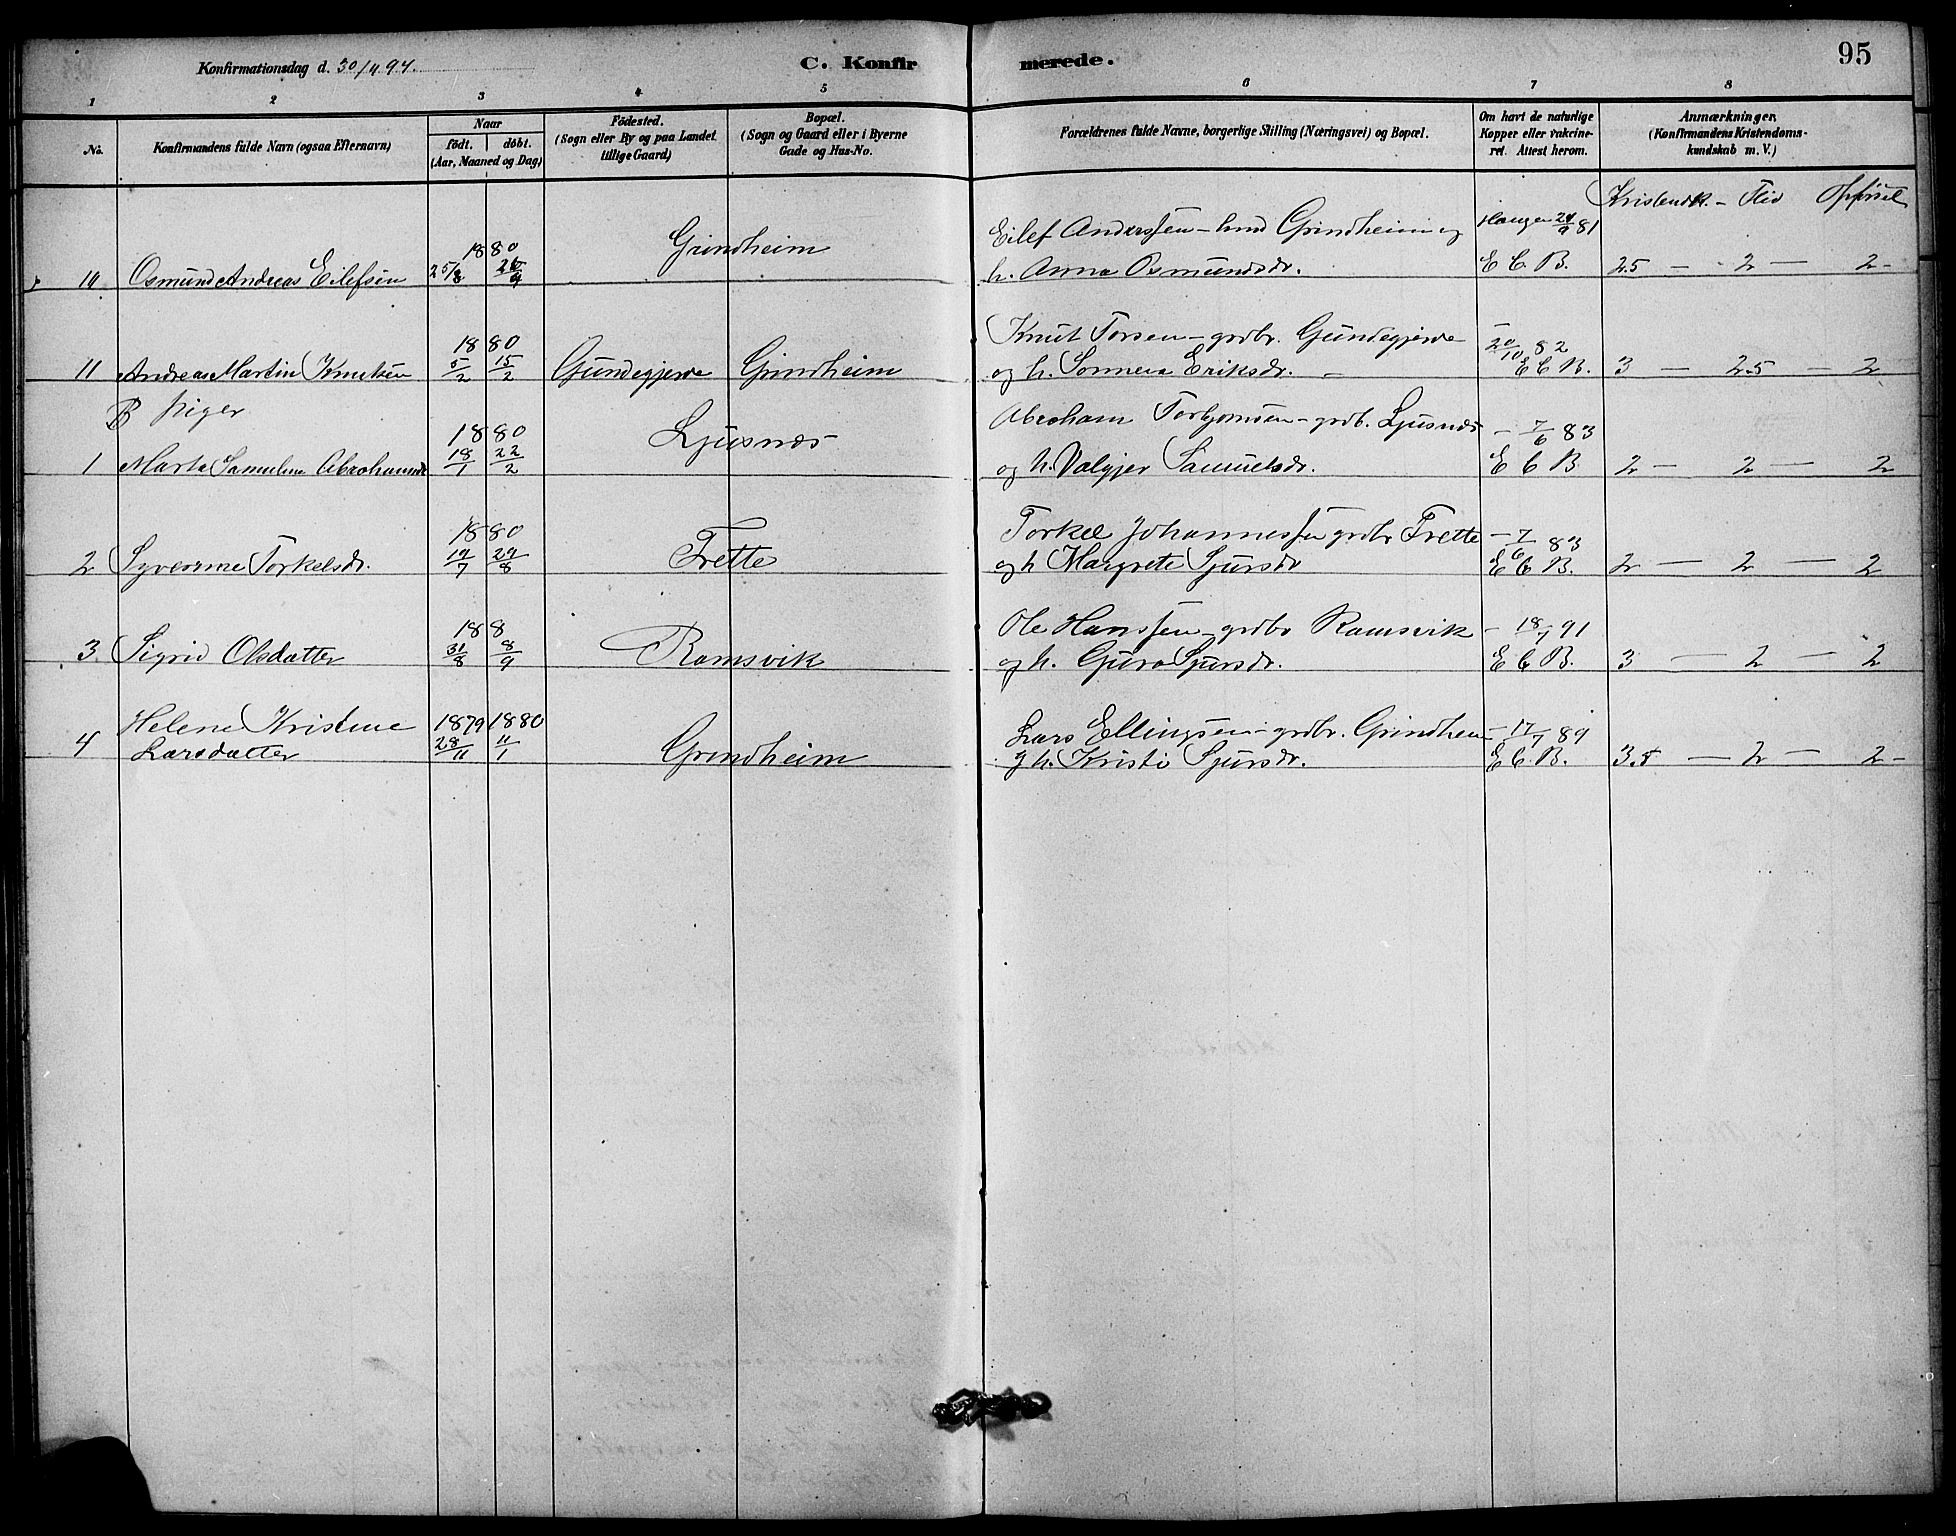 Konfirmationsdag d. 30/11 94.
C. Konfir merede.
95
1 2 3 4 5 6 7 8
No.
Konfirmandens fulde Navn (ogsaa Efternavn)
Naar
födt. döbt.
(Aar, Maaned og Dag)
Födested.
(Sogn eller By og paa Landet
tillige Gaard)
Bopæl.
(Sogn og Gaard eller i Byerne
Gade og Hus-No.
Forældrenes fulde Navne, borgerlige Stilling (Næringsvei) og Bopæl.
Om havt de naturlige
Kopper eller vakcine-
ret. Attest herom.
Anmærkninger,
(Konfirmandens Kristendoms-
kundskab m. V.)
Kristendk. - Flid Opförsel
1880 Grindheim Eilef Anderssen - Grindheim og Haugen 24/9 81
10 Osmund Andreas Eilefsen 25/8 26/9 h. Anna Osmundsdr. E C. B. 2.5 — 2 — 2 -
1880 Knut Torsen - grdbr. Gundegjerde 20/10 82
11 Andreas Martin Knutsen 5/2 15/2 Gundegjerde Grindheim og h. Eriksdr. — E C B. 3 — 2.5 — 2
B piger
1880 Ljusnæs Abraham Torbjornsen - grdb. Ljusnæs - 7/6 83
1 Marta Samuline Abrahamsdr 18/1 22/2 og h. Valgjer Samuelsdr. E C B 2 — 2 — 2
1880 Frette Torkel Johannessen grdbr Frette - 7/6 83
2 Syverine Torkelsdr. 19/7 29/8 og h Margrete Sjursdr E C B. 2 — 2 — 2
188 Ole Hanssen - grdbr Ramsvik - 18/7 91
3 Sigrid Olsdatter 31/8 8/9 Ramsvik og h. Guro Sjursdr. E C B. 3 — 2 — 2
Helene Kristine 1879 1880 Lars Ellingsen - grdbr. Grindhem - 17/7 89
4 Larsdatter 28/11 11/1 Grindheim og h. Kristi Sjursdr. E C. B. 3.5 — 2 — 2 -